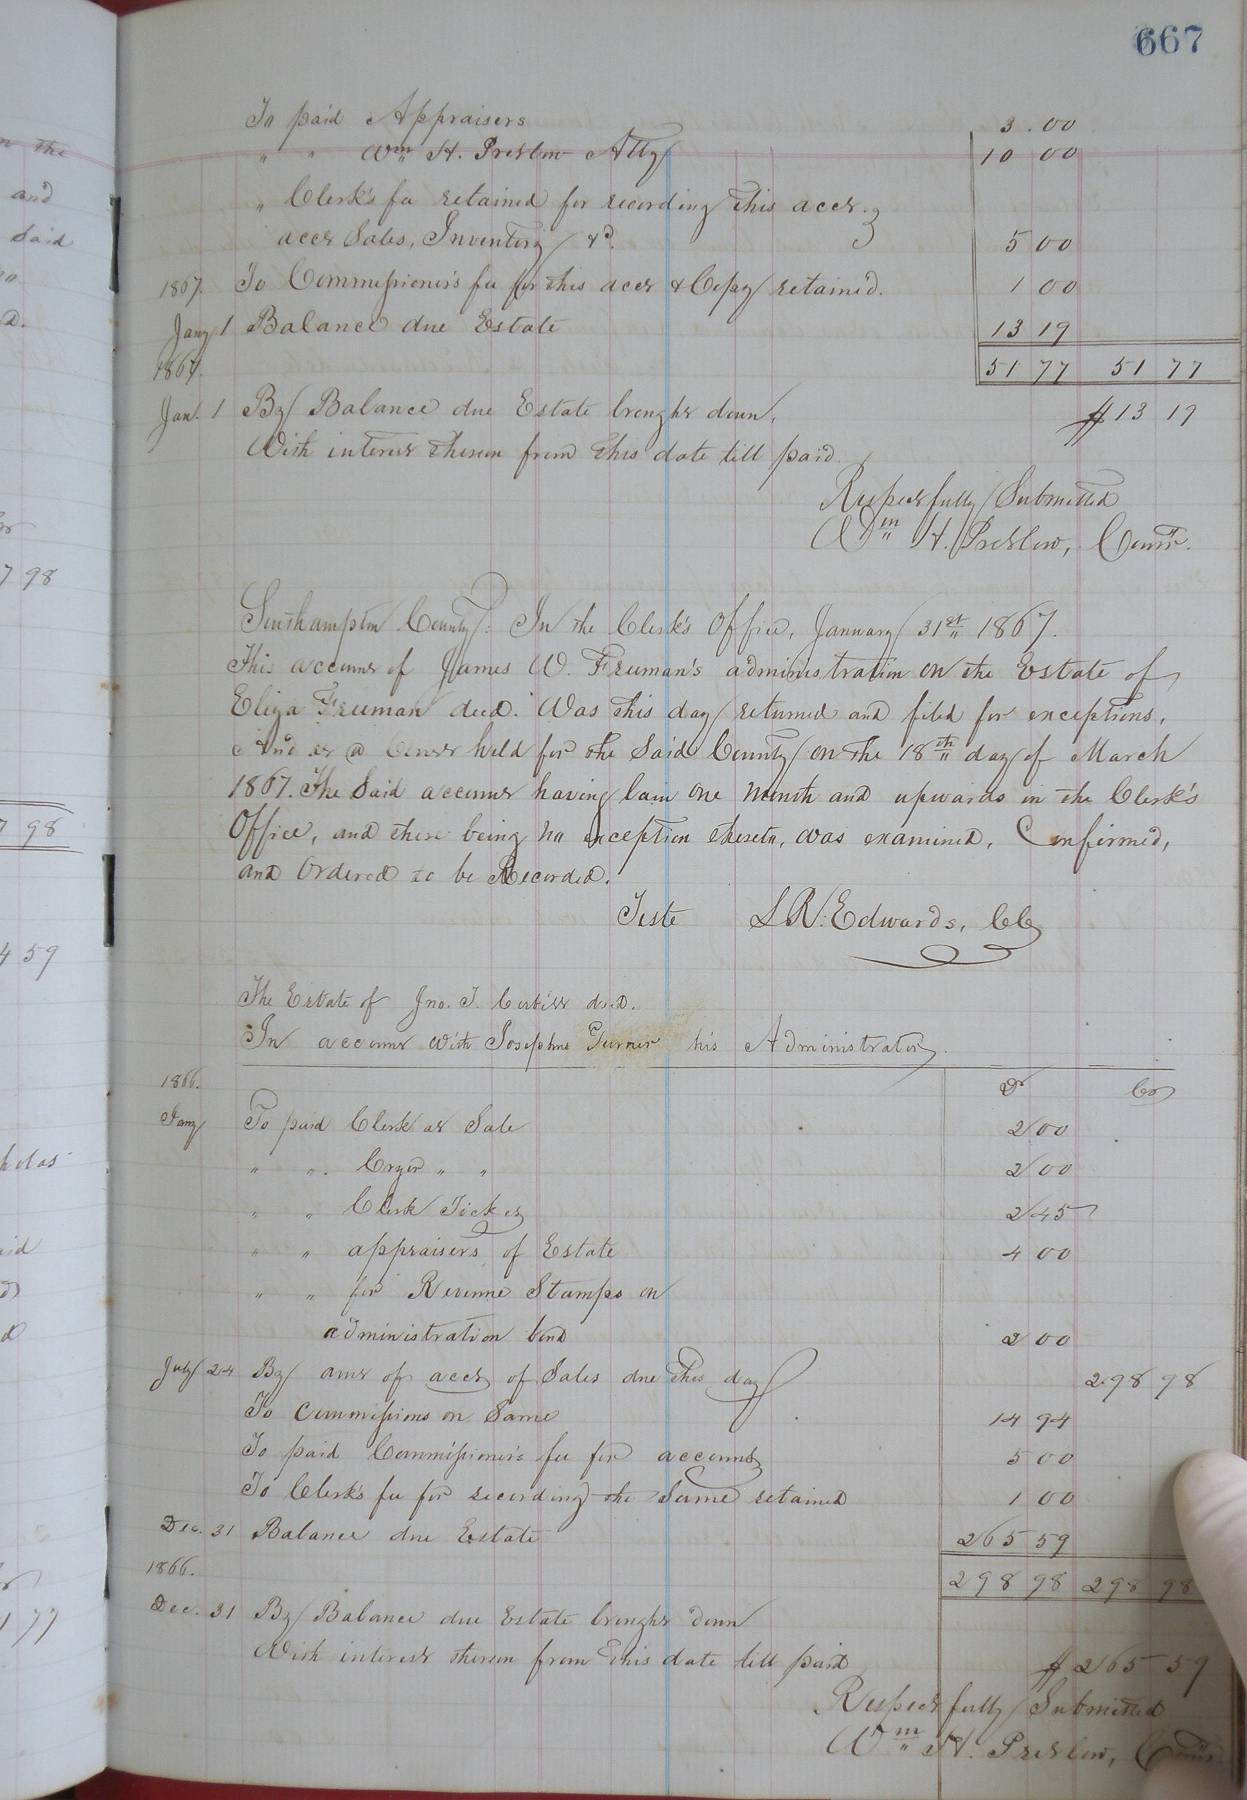 667
To paid Appraisers 3.00
" " Wm H. Preslow Atty 10 00
" Clerk's fee retained for recording this acct.
acct Sales, Inventory &c. 5 00
1867. To Commissioner's fee for this acct & Copy retained. 1 00
Jany 1 Balance due Estate 13 19
1867. 51 77 51 77
Jan. 1 By Balance due Estate brought down, $13 19
With interest thereon from this date till paid.
Respectfully Submitted
Wm H. Preslow, Comr.
Southampton County: In the Clerk's Office, January 31st 1867.
This account of James W. Freeman's administration on the Estate of
Eliza Freeman decd. Was this day returned and filed for exceptions,
And at a Court held for the Said County on the 18th day of March
1867. The Said account having lain one Month and upwards in the Clerk's
Office, and there being no exception thereto, was examined, Confirmed,
and Ordered to be Recorded.
Teste L R. Edwards, CC
The Estate of Jno. T. decd.
In account With Josephus Turner his Administrator
1866. Dr Cr
Jany To paid Clerk at Sale 2 00
" " Cryer " " 2 00
" " Clerk Ticket 2 45
" " appraisers of Estate 4 00
" " for Revenue Stamps on
administration bond 2 00
July 24 By amt of acct of Sales due this day 298 98
To Commissions on Same 14 94
To paid Commissioner's fee for account 5 00
To Clerk's fee for recording the Same retained 1 00
Dec. 31 Balance due Estate 265 59
1866. 298 98 298 98
Dec. 31 By Balance due Estate brought down
With interest thereon from this date till paid $265 59
Respectfully Submitted
Wm H. Preslow, Comr.
n the
and
Said
d.
7 98
7 98
4 59
holas
aid
d
1 77